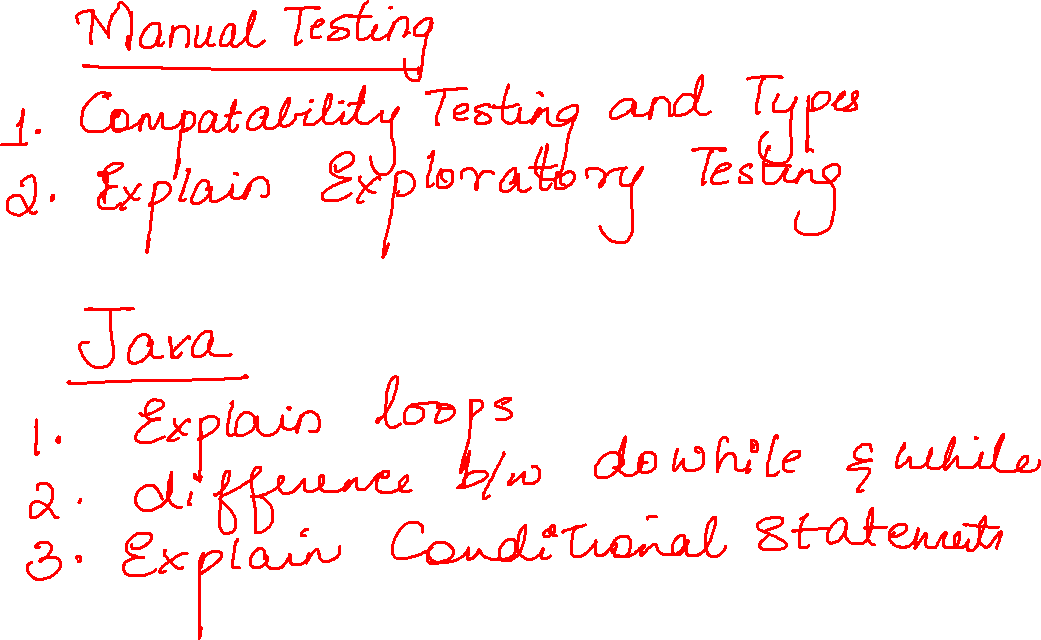 Manual Testing
1. Compatability Testing and Types
2. Explain Exploratory Testing
Java
1. Explain loops
2. difference b/w dowhile & while
3. Explain Conditional Statements